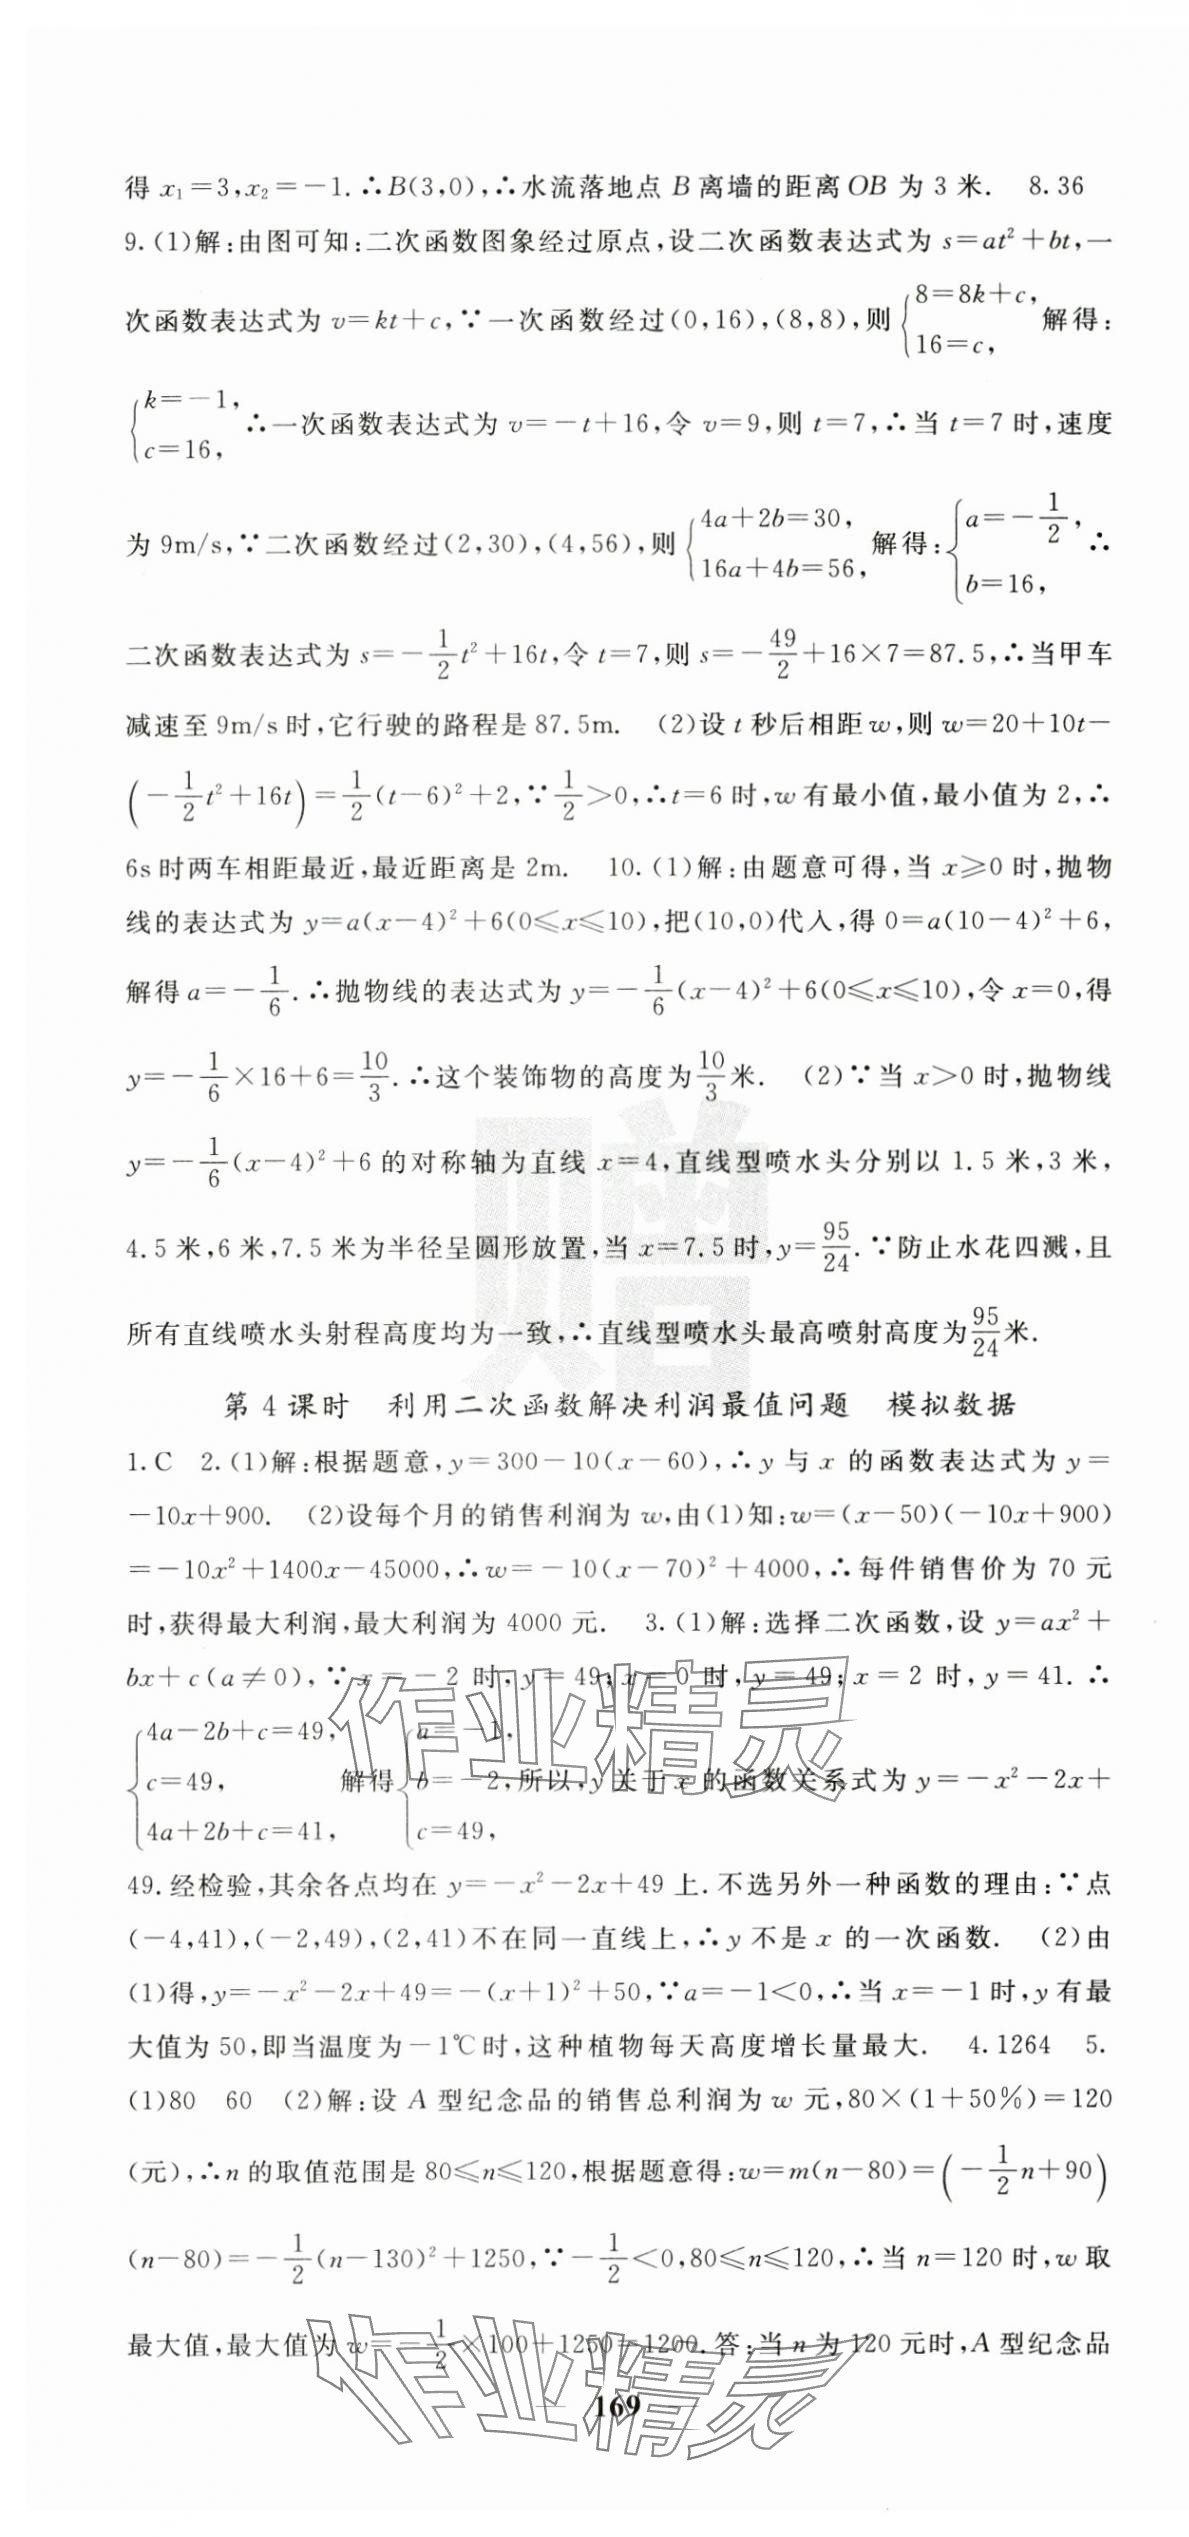 得 x₁=3,x₂=-1.∴B(3,0),∴水流落地点 B 离墙的距离 OB 为 3 米. 8.36
9.(1)解:由图可知:二次函数图象经过原点,设二次函数表达式为 s=at²+bt,一
次函数表达式为 v=kt+c,∵一次函数经过(0,16),(8,8),则{8=8k+c, 16=c, 解得:
{k=-1, c=16, ∴一次函数表达式为 v=-t+16,令 v=9,则 t=7,∴当 t=7 时,速度
为 9m/s,∵二次函数经过(2,30),(4,56),则{4a+2b=30, 16a+4b=56, 解得:{a=-1/2, b=16, ∴
二次函数表达式为 s=-1/2t²+16t,令 t=7,则 s=-49/2+16×7=87.5,∴当甲车
减速至 9m/s 时,它行驶的路程是 87.5m. (2)设 t 秒后相距 w,则 w=20+10t-
(-1/2t²+16t)=1/2(t-6)²+2,∵1/2>0,∴t=6 时,w 有最小值,最小值为 2,∴
6s 时两车相距最近,最近距离是 2m. 10.(1)解:由题意可得,当 x≥0 时,抛物
线的表达式为 y=a(x-4)²+6(0≤x≤10),把(10,0)代入,得 0=a(10-4)²+6,
解得 a=-1/6.∴抛物线的表达式为 y=-1/6(x-4)²+6(0≤x≤10),令 x=0,得
y=-1/6×16+6=10/3.∴这个装饰物的高度为10/3米. (2)∵当 x>0 时,抛物线
y=-1/6(x-4)²+6 的对称轴为直线 x=4,直线型喷水头分别以 1.5 米,3 米,
4.5 米,6 米,7.5 米为半径呈圆形放置,当 x=7.5 时,y=95/24.∵防止水花四溅,且
所有直线喷水头射程高度均为一致,∴直线型喷水头最高喷射高度为95/24米.
赠
第 4 课时 利用二次函数解决利润最值问题 模拟数据
1.C 2.(1)解:根据题意,y=300-10(x-60),∴y 与 x 的函数表达式为 y=
-10x+900. (2)设每个月的销售利润为 w,由(1)知:w=(x-50)(-10x+900)
=-10x²+1400x-45000,∴w=-10(x-70)²+4000,∴每件销售价为 70 元
时,获得最大利润,最大利润为 4000 元. 3.(1)解:选择二次函数,设 y=ax²+
bx+c(a≠0),∵x=-2 时,y=49;x=0 时,y=49;x=2 时,y=41.∴
{4a-2b+c=49, c=49, 4a+2b+c=41, 解得{a=-1, b=-2, c=49, 所以,y 关于 x 的函数关系式为 y=-x²-2x+
49.经检验,其余各点均在 y=-x²-2x+49 上.不选另外一种函数的理由:∵点
(-4,41),(-2,49),(2,41)不在同一直线上,∴y 不是 x 的一次函数. (2)由
(1)得,y=-x²-2x+49=-(x+1)²+50,∵a=-1<0,∴当 x=-1 时,y 有最
大值为 50,即当温度为-1℃时,这种植物每天高度增长量最大. 4.1264 5.
(1)80 60 (2)解:设 A 型纪念品的销售总利润为 w 元,80×(1+50%)=120
(元),∴n 的取值范围是 80≤n≤120,根据题意得:w=m(n-80)=(-1/2n+90)
(n-80)=-1/2(n-130)²+1250,∵-1/2<0,80≤n≤120,∴当 n=120 时,w 取
最大值,最大值为 w=-1/2×100+1250=1200.答:当 n 为 120 元时,A 型纪念品
169
作业精灵
作业精灵